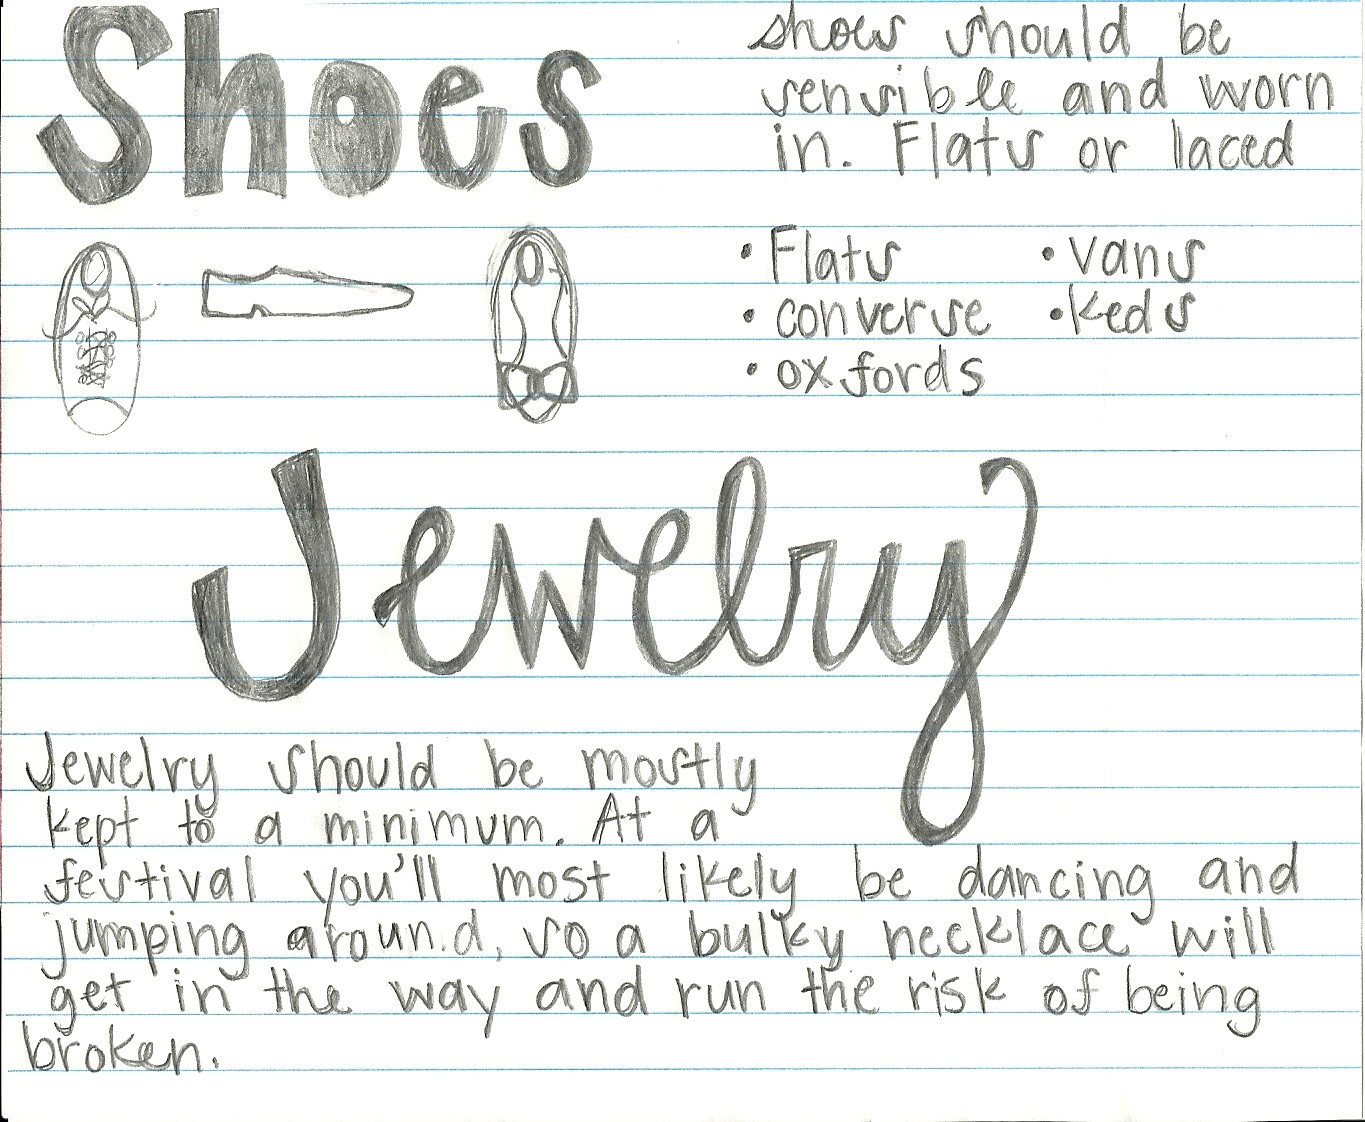 Shoes
shoes should be
sensible and worn
in. Flats or laced
• Flats
• converse
• oxfords
• vans
• Keds
Jewelry
Jewelry should be mostly
kept to a minimum. At a
festival you'll most likely be dancing and
jumping around, so a bulky necklace will
get in the way and run the risk of being
broken.